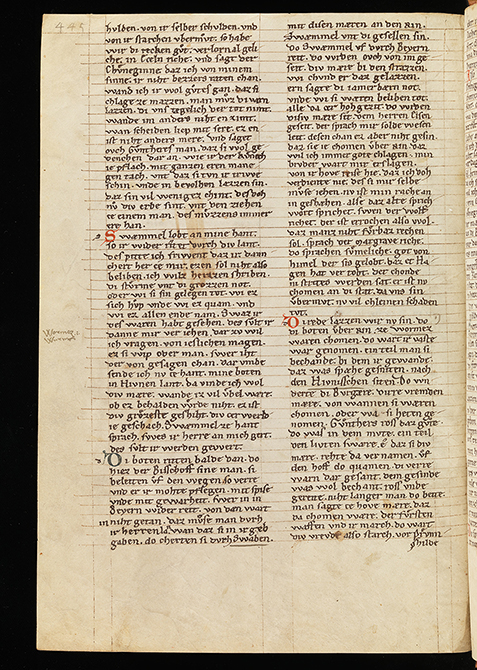 445
hvlden. von ir selber schvlden. vnd
von ir starchen vbermvt. so habe
wir di recken gvt. verlorn al geli
che. in Eceln riche. vnd sagt der
Chuneginne daz ich von minem
sinne. ir niht bezzers raten chan.
wand ich ir wol gutes gan. daz si
chlage ze mazzen. man mvz di varn
lazzen. di vns tegelich der tot nimt.
wande im anders niht en zimt.
wan scheiden liep mit sere. ez en
ist niht anders mere. vnd saget
ovch Gvnthers man. daz si wol ge
denchen dar an. wie ir der kunich
ie pflach. mit ganzen eren mane
gen tach. vnt daz si tvn ir triwe
schin. vnde in bevolhen lazzen sin.
daz sin vil weniger chint. des wil
nv div erde sint. vnt den ziehen
ze einem man. des mvzzens immer
ere han.
Swæmmel lobt an mine hant.
so ir wider ritet dvrch div lant.
des pitte ich friwent daz ir dann
chert her ze mir. ezen sol niht also
beliben. ich wilz heizzen schriben.
di stvrme vnt di grozzen not.
oder wi si sin gelegen tot. wi ez
sich hvp vnde wi ez quam. vnd
wi ez allen ende nam. Swaz ir
des waren habt gesehen. des svlt ir
danne mir veriehen. dar zv wil
ich vragen. von ieslichen magen
ez si wip oder man. swer iht
der von gesagen chan. dar vmbe
sende ich nv ze hant. mine boten
in Hivnen lant. da vinde ich wol
div mære. wande iz vil vbel wære
ob ez behalden wrde niht. ez ist
div grozeste geschiht. div zer werlde
ie geschach. Swæmmel ze hant
sprach. swes ir herre an mich gert.
des svlt ir werden gewert.
Di boten riten balde dan. do
hiez der Bisschoff sine man. si
beleiten vf den wegen so verre
vnd er ir mohte pflegen. mit spise
vnde mit gewarheit. swer in in
Beyern wider reit. von den wart
in niht getan. daz mvse man dvrh
ir herren lazzen wan daz si in ir geb
gaben. do cherten si dvrh Swaben.
mit disen mæren an den Rin.
Swæmmel vnt di gesellen sin.
do Swæmmel vf dvrch Beyern
reit. do wrden ovch von im ge
seit. div mære bi den strazzen.
wi chvnd er daz gelazzen.
ern sagte di iamerbærn not.
vnde wi si wæren beliben tot.
alle da zer hohgezit. do wrden
disiv mære sit. dem herren Elsen
geseit. der sprach mir solde wesen
leit. disen chan ez aber niht gesin.
daz sie ie chomen vber Rin. daz
wil ich immer gote chlagen. min
brvder. wart mir erslagen.
von ir hove reise hie. daz ich doh
verdiente nie. des si mir selbe
mvse iehen. nv ist min rache an
in geschehen. alse daz alte sprich
wort sprichet. swen der wolf
richet. der ist errochen also wol.
daz manz niht fvrbaz rechen
sol. sprach der margrave riche.
do sprachen svmeliche. got von
himel der sis gelobt. daz et Ha
gen hat ver tobt. der chonde
in strites werden sat. er ist nv
chomen an di stat. da vns sin
vbermvt. nv vil chleinen schaden
tvt.
Di rede lazzen wir nv sin. do
di boten vber Rin. ze Wormez
waren chomen. do wart ir waste
war genomen. ein teil man si
bechande. bi dem ir gewande.
daz was spæhe gesniten. nach
den Hivnisschen siten. do wn
derte di Bvrgære. dirre vremden
mære. von wannen si wæren
chomen. oder wa si heten ge
nomen. Gvnthers ros daz gvte.
do wal in dem mvte. ein teil
den livten swære. e daz si div
mære. rehte da vernamen. vf
den hoff do quamen. di verre
warn dar gesant. dem gesinde
was wol bechant. ros vnde
gereite. niht langer man do beite.
man sagte ze hove mære. daz
da chomen wære. der fvrsten
waffen vnd ir march. do wart
div vrevde also starch. vor Prvn
hilde